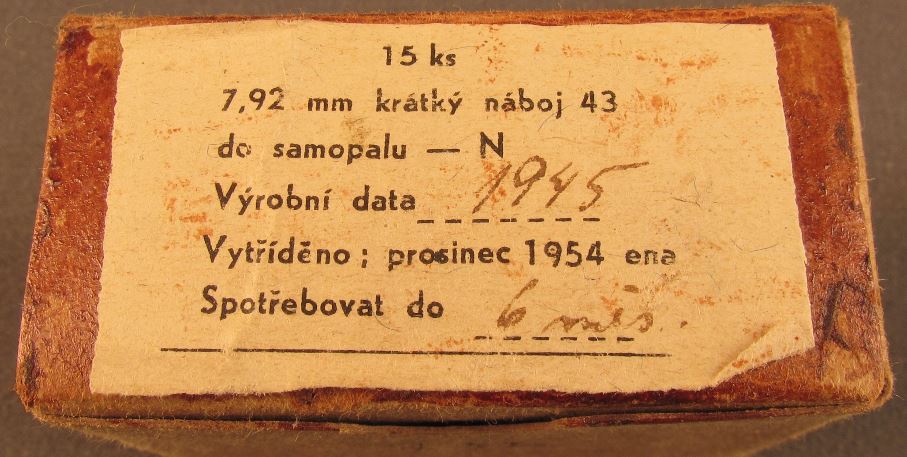 15 ks
7,92 mm krátký náboj 43
do samopalu — N
Výrobní data 1945
Vytříděno ; prosinec 1954 ena
Spotřebovat do 6 měs.